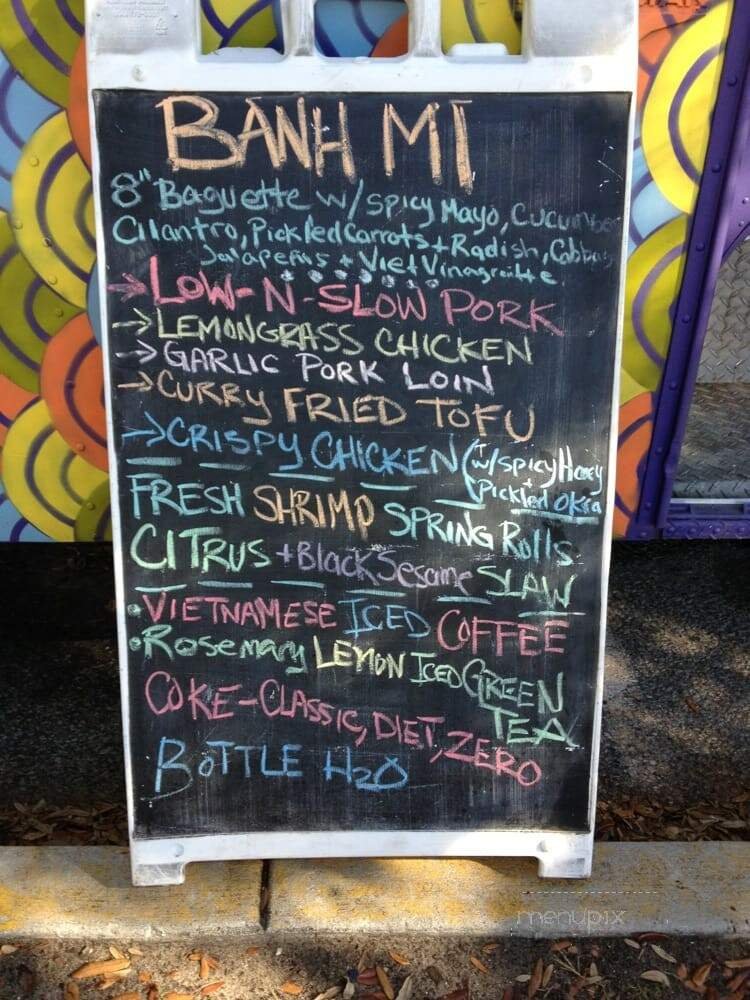 BANH MI
8" Baguette w/ spicy Mayo, Cucumber
Cilantro, Pickled Carrots + Radish, Cabbage
Jalapeños + Viet Vinagrette
→ LOW-N-SLOW PORK
→ LEMONGRASS CHICKEN
→ GARLIC PORK LOIN
→ CURRY FRIED TOFU
→ CRISPY CHICKEN (w/ spicy Honey
+ Pickled OKra
FRESH SHRIMP SPRING Rolls
CITRUS + Black Sesame SLAW
• VIETNAMESE ICED COFFEE
• Rosemary LEMON ICED GREEN
TEA
COKE-CLASSIC, DIET, ZERO
BOTTLE H2O
menupix